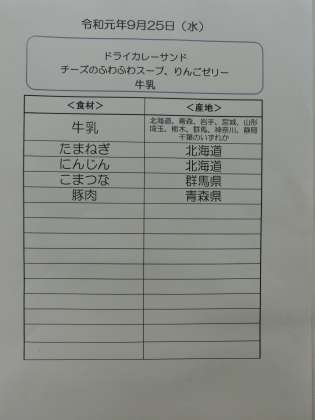 令和元年9月25日（水）
ドライカレーサンド
チーズのふわふわスープ、りんごゼリー
牛乳
＜食材＞ ＜産地＞
牛乳 北海道、青森、岩手、宮城、山形
埼玉、栃木、群馬、神奈川、静岡
千葉のいずれか
たまねぎ 北海道
にんじん 北海道
こまつな 群馬県
豚肉 青森県